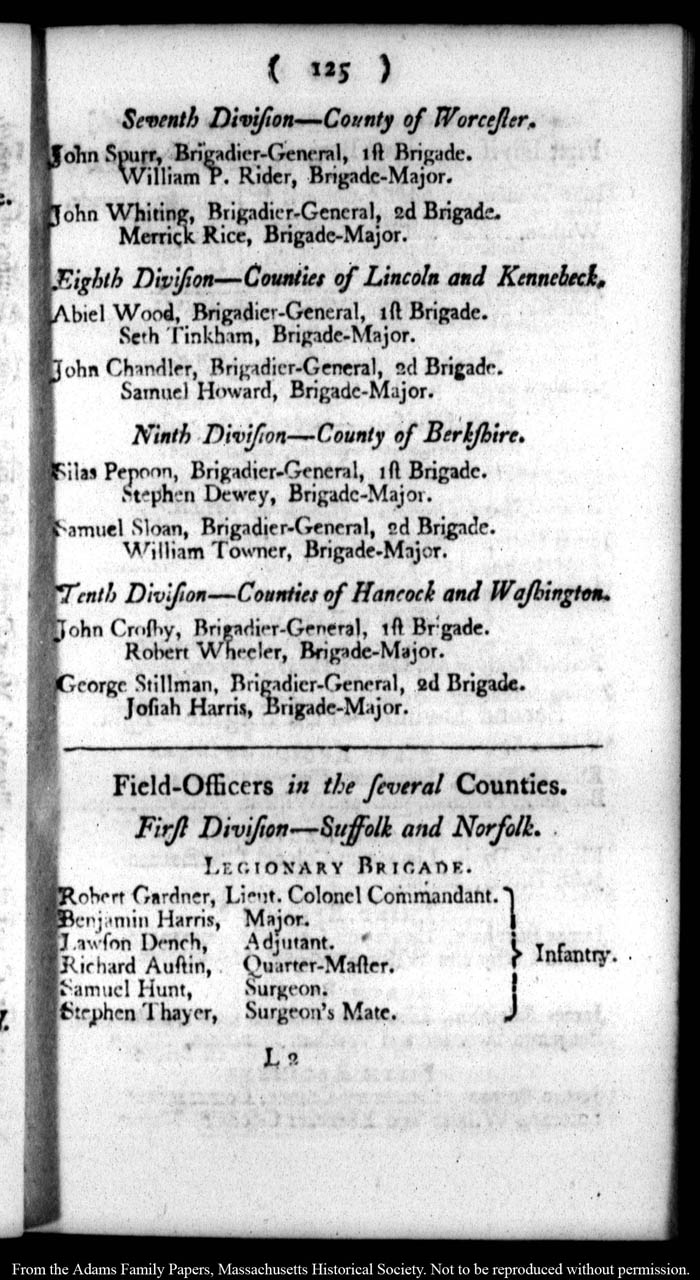 ( 125 )
Seventh Diviſion—County of Worceſter.
John Spurr, Brigadier-General, 1ſt Brigade.
William P. Rider, Brigade-Major.
John Whiting, Brigadier-General, 2d Brigade.
Merrick Rice, Brigade-Major.
Eighth Diviſion—Counties of Lincoln and Kennebeck.
Abiel Wood, Brigadier-General, 1ſt Brigade.
Seth Tinkham, Brigade-Major.
John Chandler, Brigadier-General, 2d Brigade.
Samuel Howard, Brigade-Major.
Ninth Diviſion—County of Berkſhire.
Silas Pepoon, Brigadier-General, 1ſt Brigade.
Stephen Dewey, Brigade-Major.
Samuel Sloan, Brigadier-General, 2d Brigade.
William Towner, Brigade-Major.
Tenth Diviſion—Counties of Hancock and Waſhington.
John Croſby, Brigadier-General, 1ſt Brigade.
Robert Wheeler, Brigade-Major.
George Stillman, Brigadier-General, 2d Brigade.
Joſiah Harris, Brigade-Major.
Field-Officers in the ſeveral Counties.
Firſt Diviſion—Suffolk and Norfolk.
LEGIONARY BRIGADE.
Robert Gardner, Lieut. Colonel Commandant.
Benjamin Harris, Major.
Lawſon Dench, Adjutant.
Richard Auſtin, Quarter-Maſter. } Infantry.
Samuel Hunt, Surgeon.
Stephen Thayer, Surgeon's Mate.
L 2
From the Adams Family Papers, Massachusetts Historical Society. Not to be reproduced without permission.